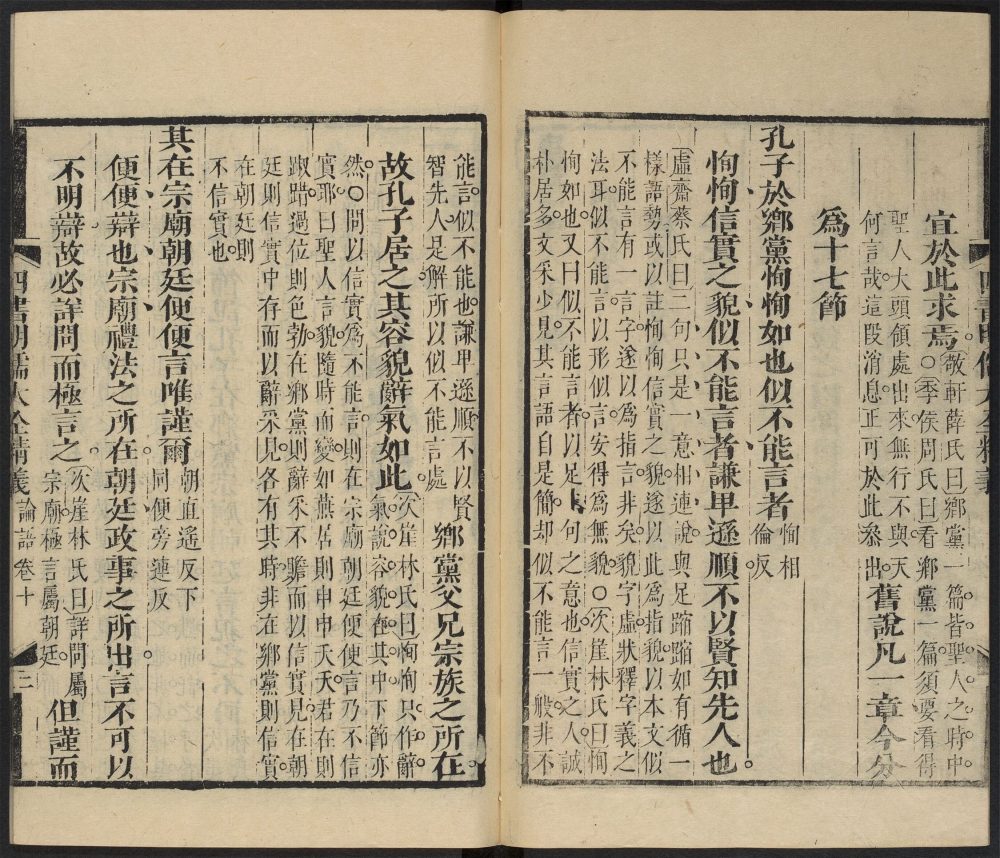 宜於此求焉。敬軒薛氏曰鄉黨一篇皆聖人之時中。○季侯周氏曰看鄉黨一篇須要看得
聖人大頭領處出來無行不與天何言哉這段消息正可於此叅出。舊說凡一章今分
為十七節
孔子於鄉黨恂恂如也似不能言者恂相倫反
恂恂信實之貌似不能言者謙卑遜順不以賢知先人也
虛齋蔡氏曰二句只是一意相連說。與足蹜蹜如有循一
樣語勢或以註恂恂信實之貌遂以此為指貌以本文似
不能言有一言字遂以為指言非矣。貌字虛狀釋字義之
法耳似不能言以形似言安得為無貌。○次崖林氏曰恂
恂如也又曰似不能言者以足句之意也信實之人誠
朴居多文采少見其言語自是簡却似不能言一般非不
能言似不能也謙卑遜順不以賢智先人是解所以似不能言處鄉黨父兄宗族之所在
故孔子居之其容貌辭氣如此次崖林氏曰恂恂只作辭氣說容貌在其中下節亦
然○問以信實為不能言則在宗廟朝廷便便言乃不信
實耶曰聖人言貌隨時而變如燕居則申申夭夭君在則
踧踖過位則色勃在鄉黨則辭采不贍而以信實見在朝
廷則信實中存而以辭采見各有其時非在鄉黨則信實
在朝廷則
不信實也
其在宗廟朝廷便便言唯謹爾朝直遙反下同便旁連反
便便辯也宗廟禮法之所在朝廷政事之所出言不可以
不明辯故必詳問而極言之。次崖林氏曰詳問屬宗廟極言屬朝廷。但謹而
四書明儒大全精義 論語卷十 三